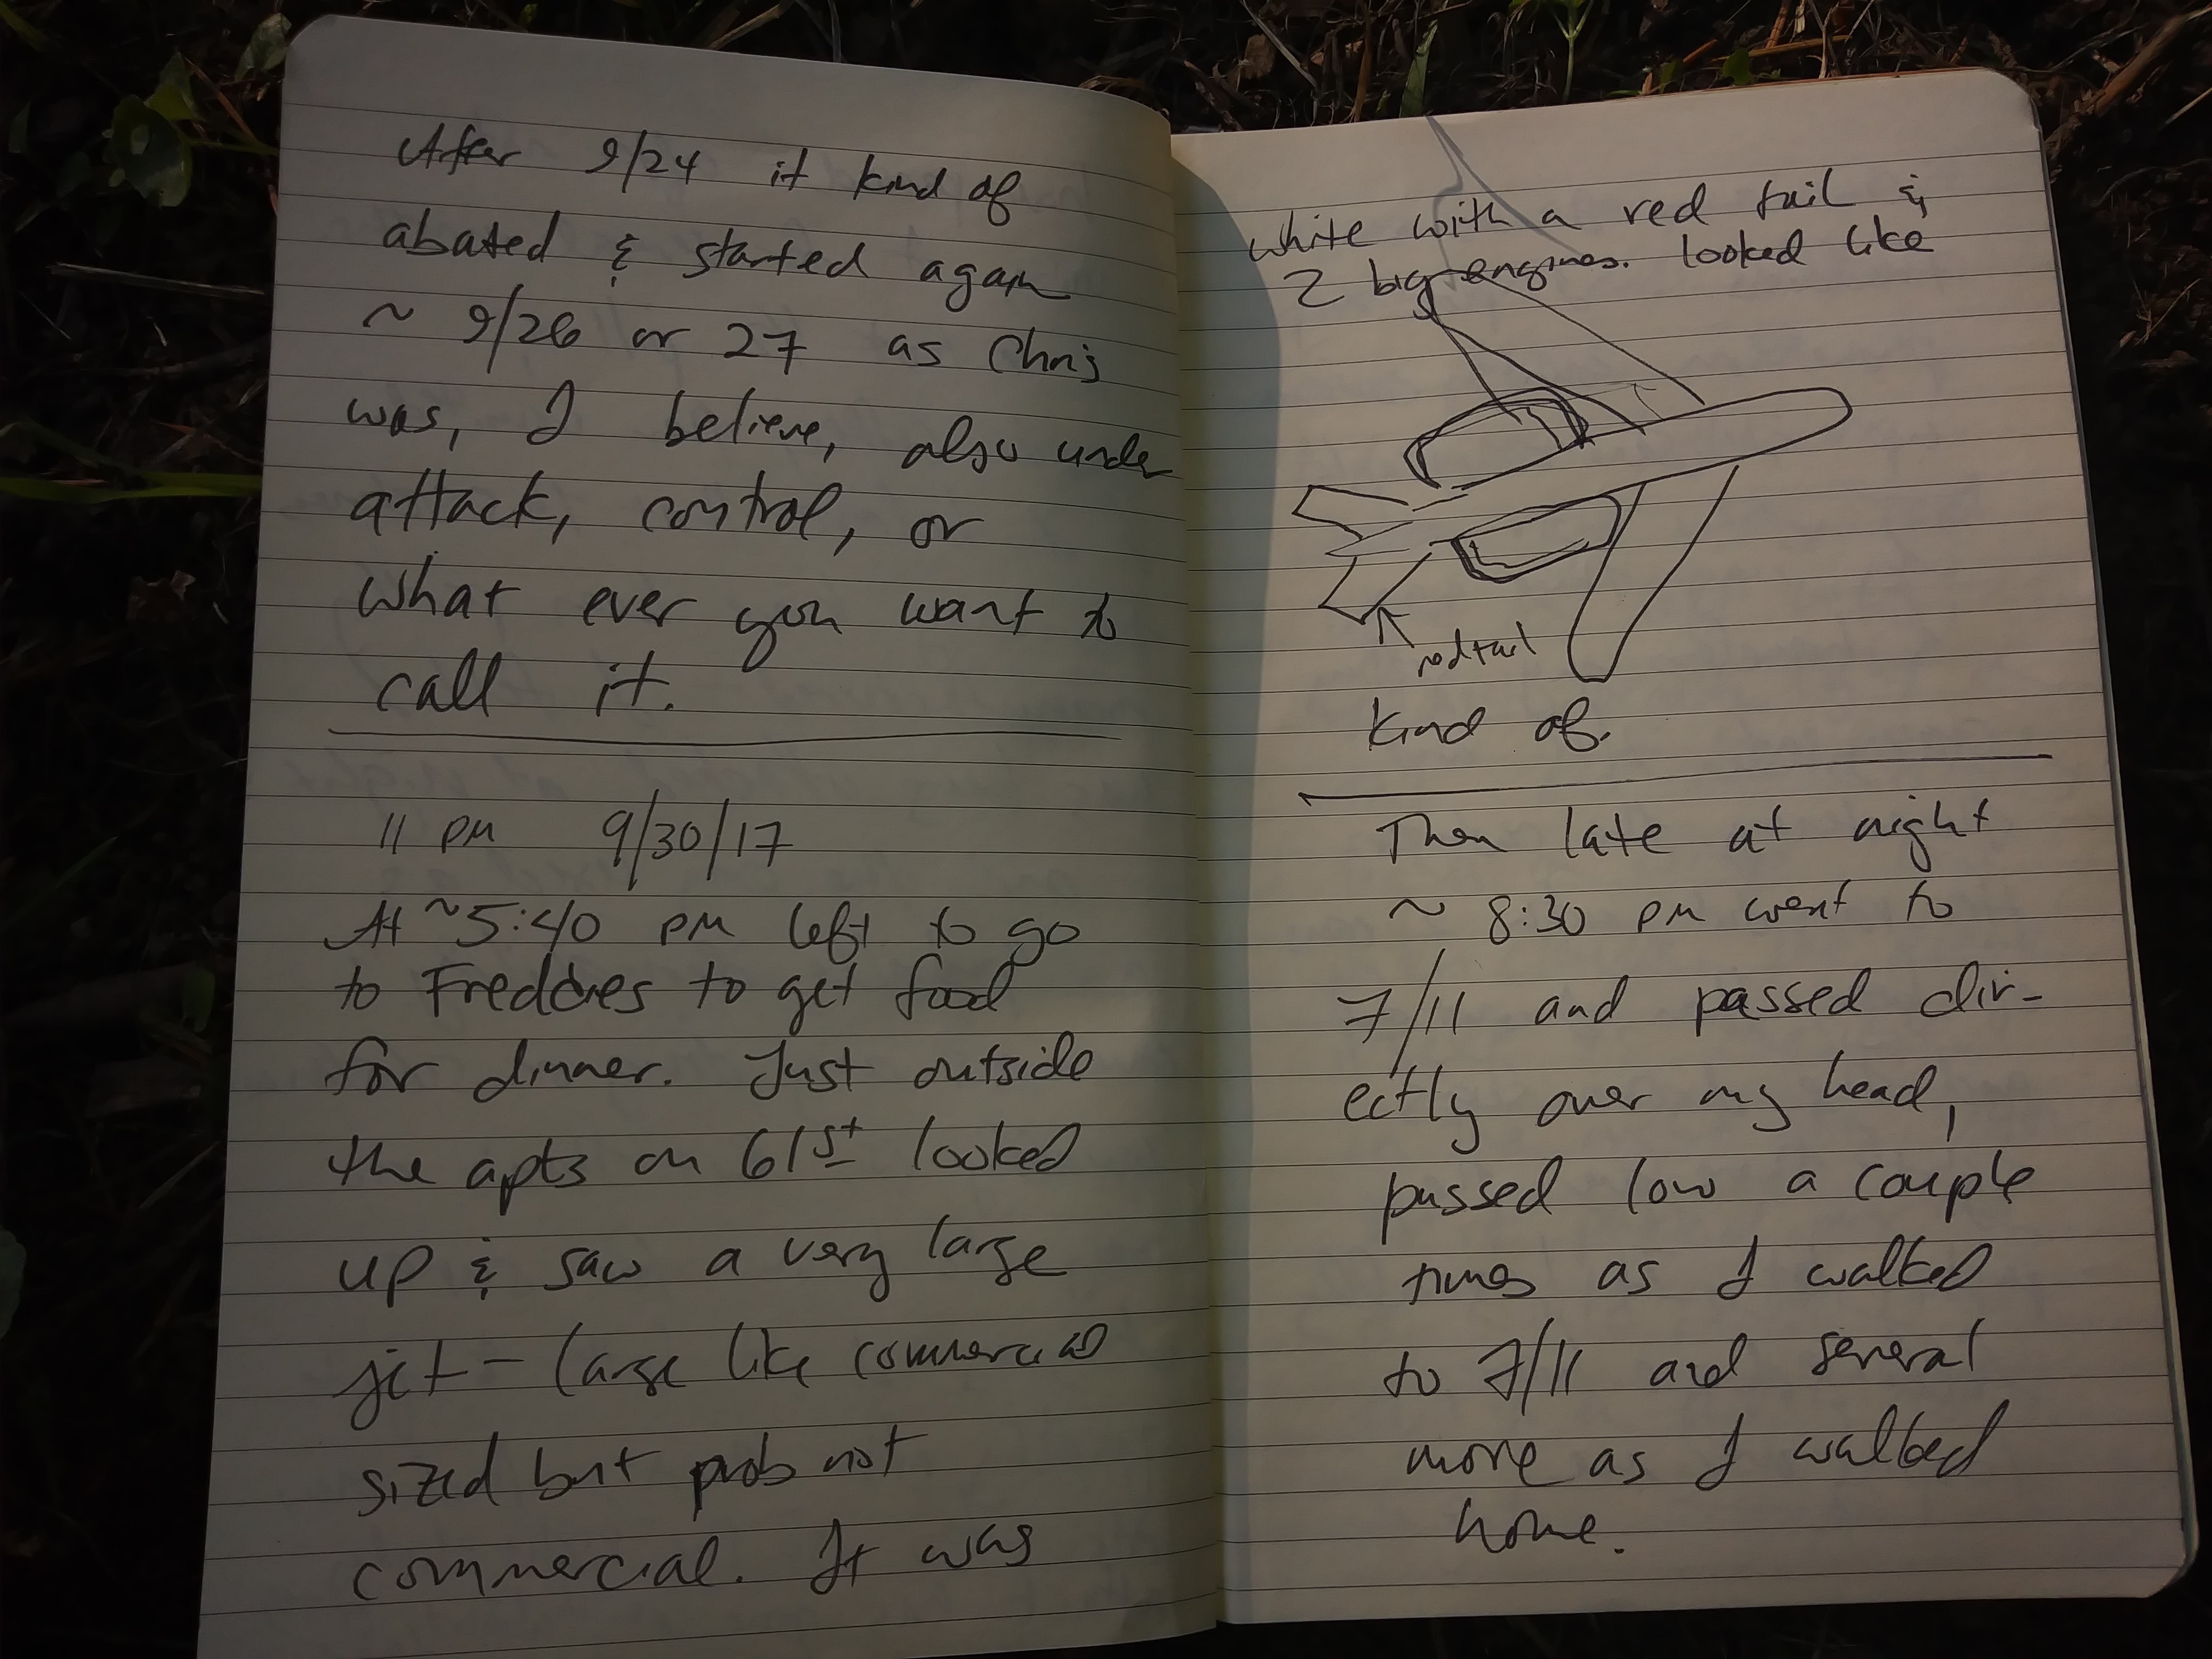 After 9/24 it kind of
abated & started again
~ 9/26 or 27 as Chris
was, I believe, also under
attack, control, or
what ever you want to
call it.
11 pm 9/30/17
At ~5:40 pm left to go
to Freddies to get food
for dinner. Just outside
the apts on 61st looked
up & saw a very large
jet - large like commercial
sized but prob not
commercial. It was
white with a red tail &
2 big engines. looked like
red tail
kind of.
Then late at night
~ 8:30 pm went to
7/11 and passed dir-
ectly over my head,
passed low a couple
times as I walked
to 7/11 and several
more as I walked
home.